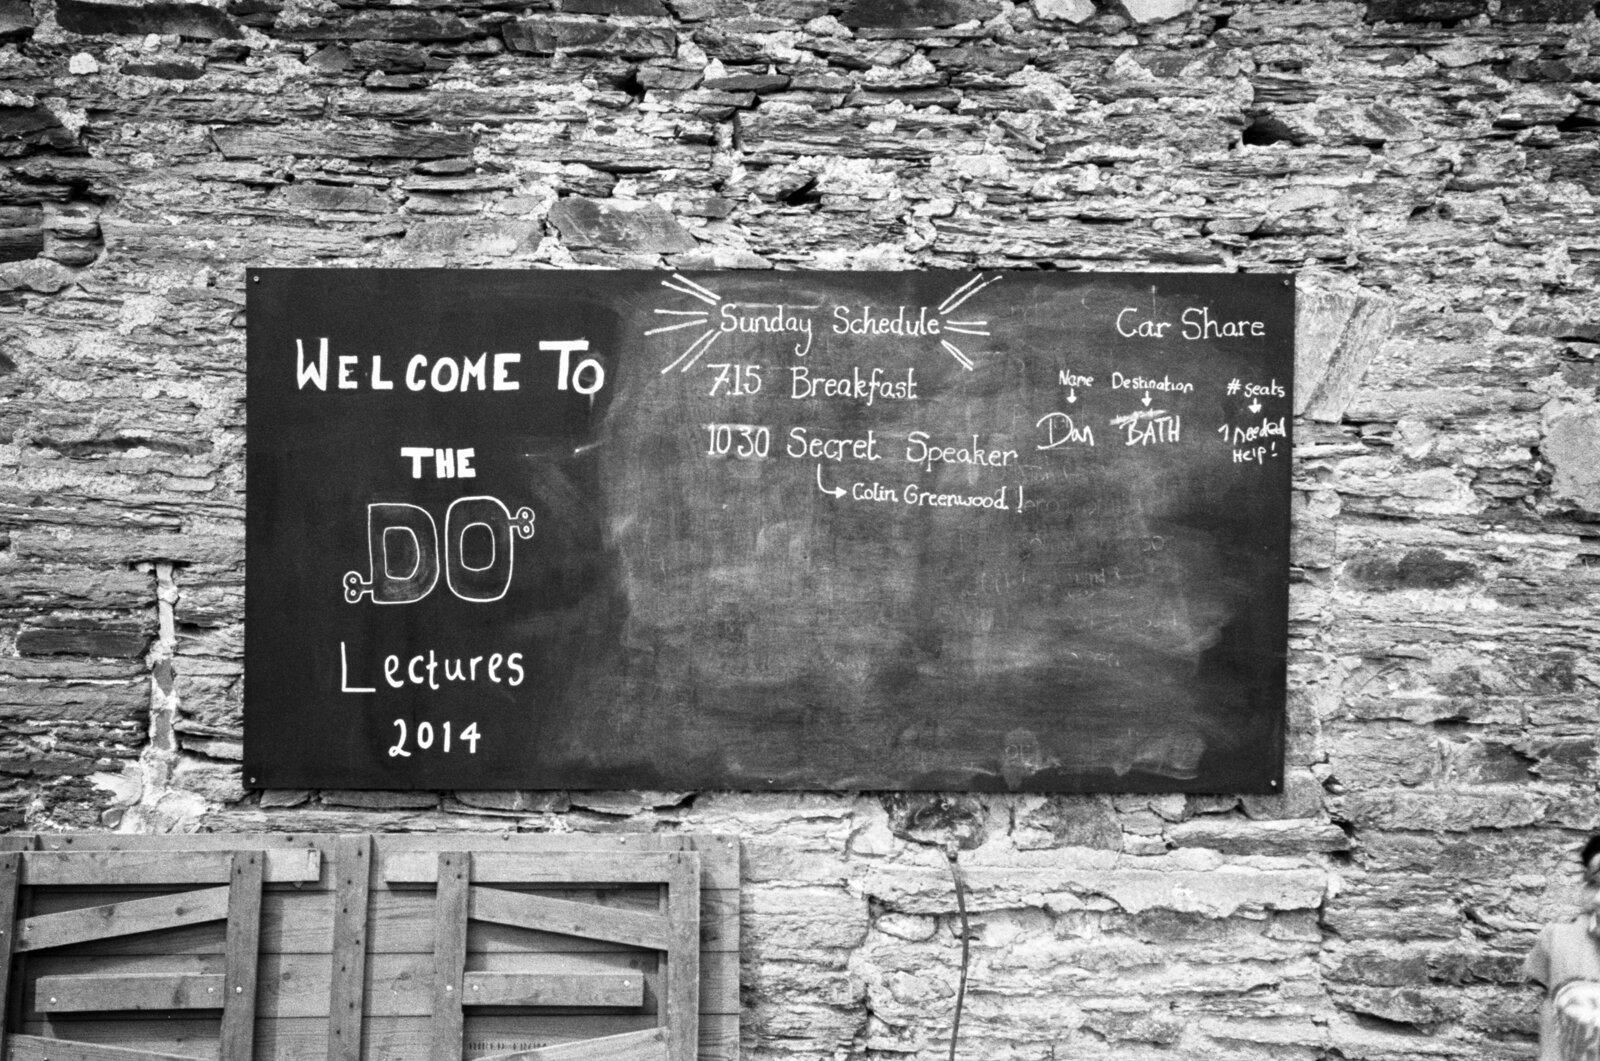 WELCOME TO
THE
DO
Lectures
2014
Sunday Schedule
7.15 Breakfast
10 30 Secret Speaker
Colin Greenwood!
Car Share
Name Destination # seats
Dan BATH 1 needed
HELP!